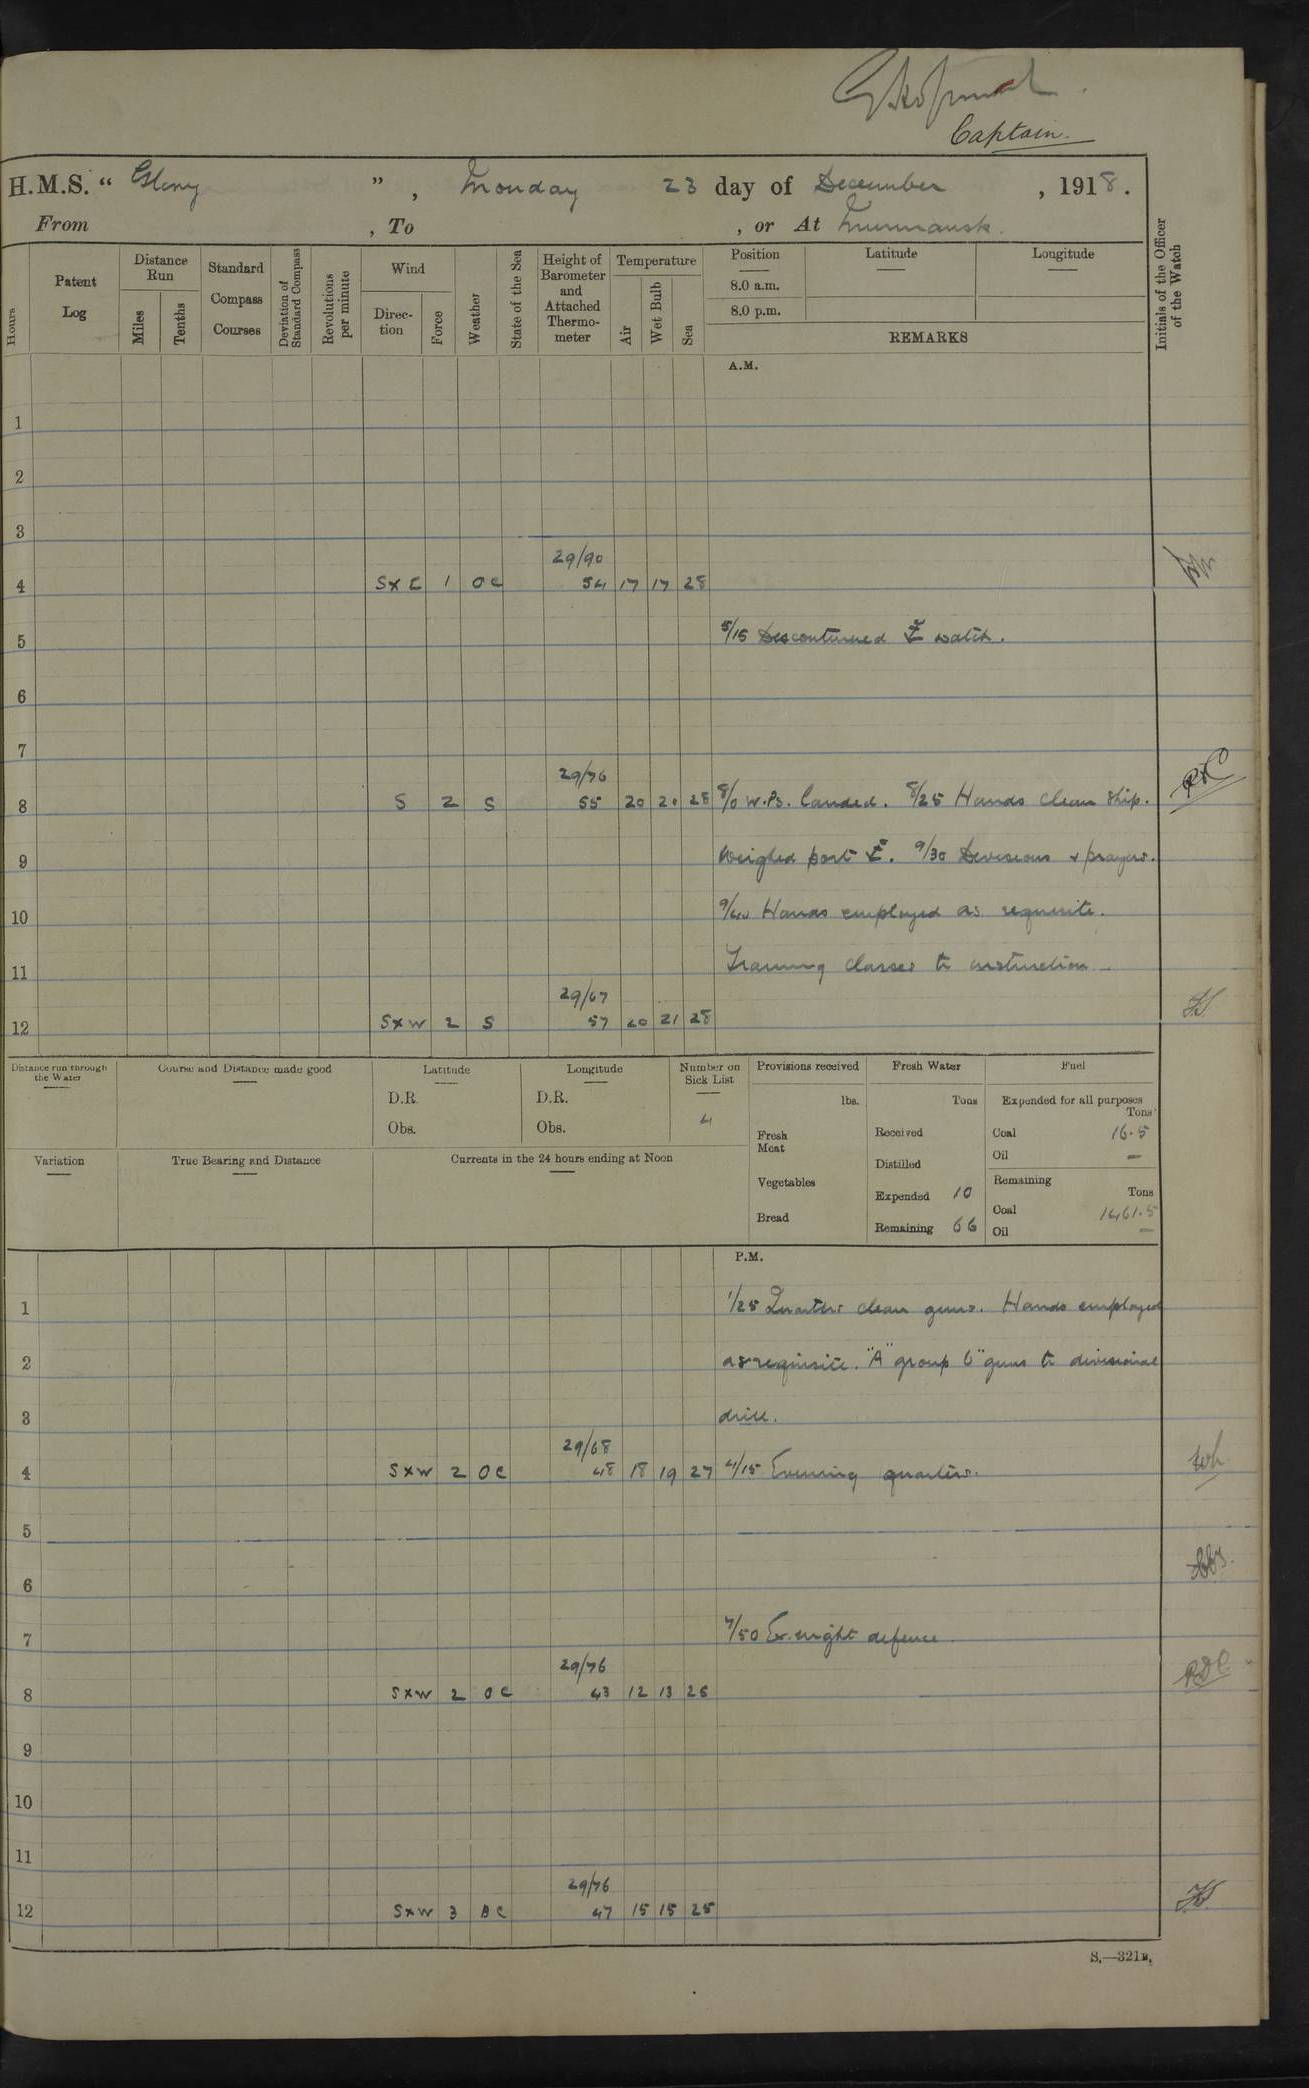 Captain.
H.M.S. " Glory " , Monday 23 day of December , 1918.
From , To , or At Murmansk.
Hours
Patent Log
Distance Run
Miles
Tenths
Standard Compass Courses
Deviation of Standard Compass
Revolutions per minute
Wind
Direc-tion
Force
Weather
State of the Sea
Height of Barometer and Attached Thermo-meter
Temperature
Air
Wet Bulb
Sea
Position
8.0 a.m.
8.0 p.m.
Latitude
Longitude
REMARKS
Initials of the Officer of the Watch
A.M.
1
2
3
29/90
4 SxE 1 OC 54 17 17 28
5 5/15 Discontinued watch.
6
7
29/76
8 S 2 S 55 20 20 28 8/0 W.Ps. landed. 8/25 Hands clean ship. RDC
9 Weighed port . 9/30 Divisions & prayers.
10 9/40 Hands employed as requisite.
11 Training classes to instruction
29/67
12 SxW 2 S 57 20 21 28
Distance run through the Water
Course and Distance made good
Latitude
D.R.
Obs.
Longitude
D.R.
Obs.
Number on Sick List
4
Provisions received
lbs.
Fresh Meat
Vegetables
Bread
Fresh Water
Tons
Received
Distilled
Expended 10
Remaining 66
Fuel
Expended for all purposes
Tons
Coal 16.5
Oil —
Remaining
Tons
Coal 1461.5
Oil —
Variation
True Bearing and Distance
Currents in the 24 hours ending at Noon
P.M.
1 1/25 Quarters clean guns. Hands employed
2 as requisite. "A" group 6" guns to divisional
3 drill.
29/68
4 SxW 2 OC 48 18 19 27 4/15 Evening quarters.
5
6
7 7/50 Ex. night defence
29/76
8 SxW 2 OC 43 12 13 26 RDC
9
10
11
29/76
12 SxW 3 BC 47 15 15 25
S.—321B.